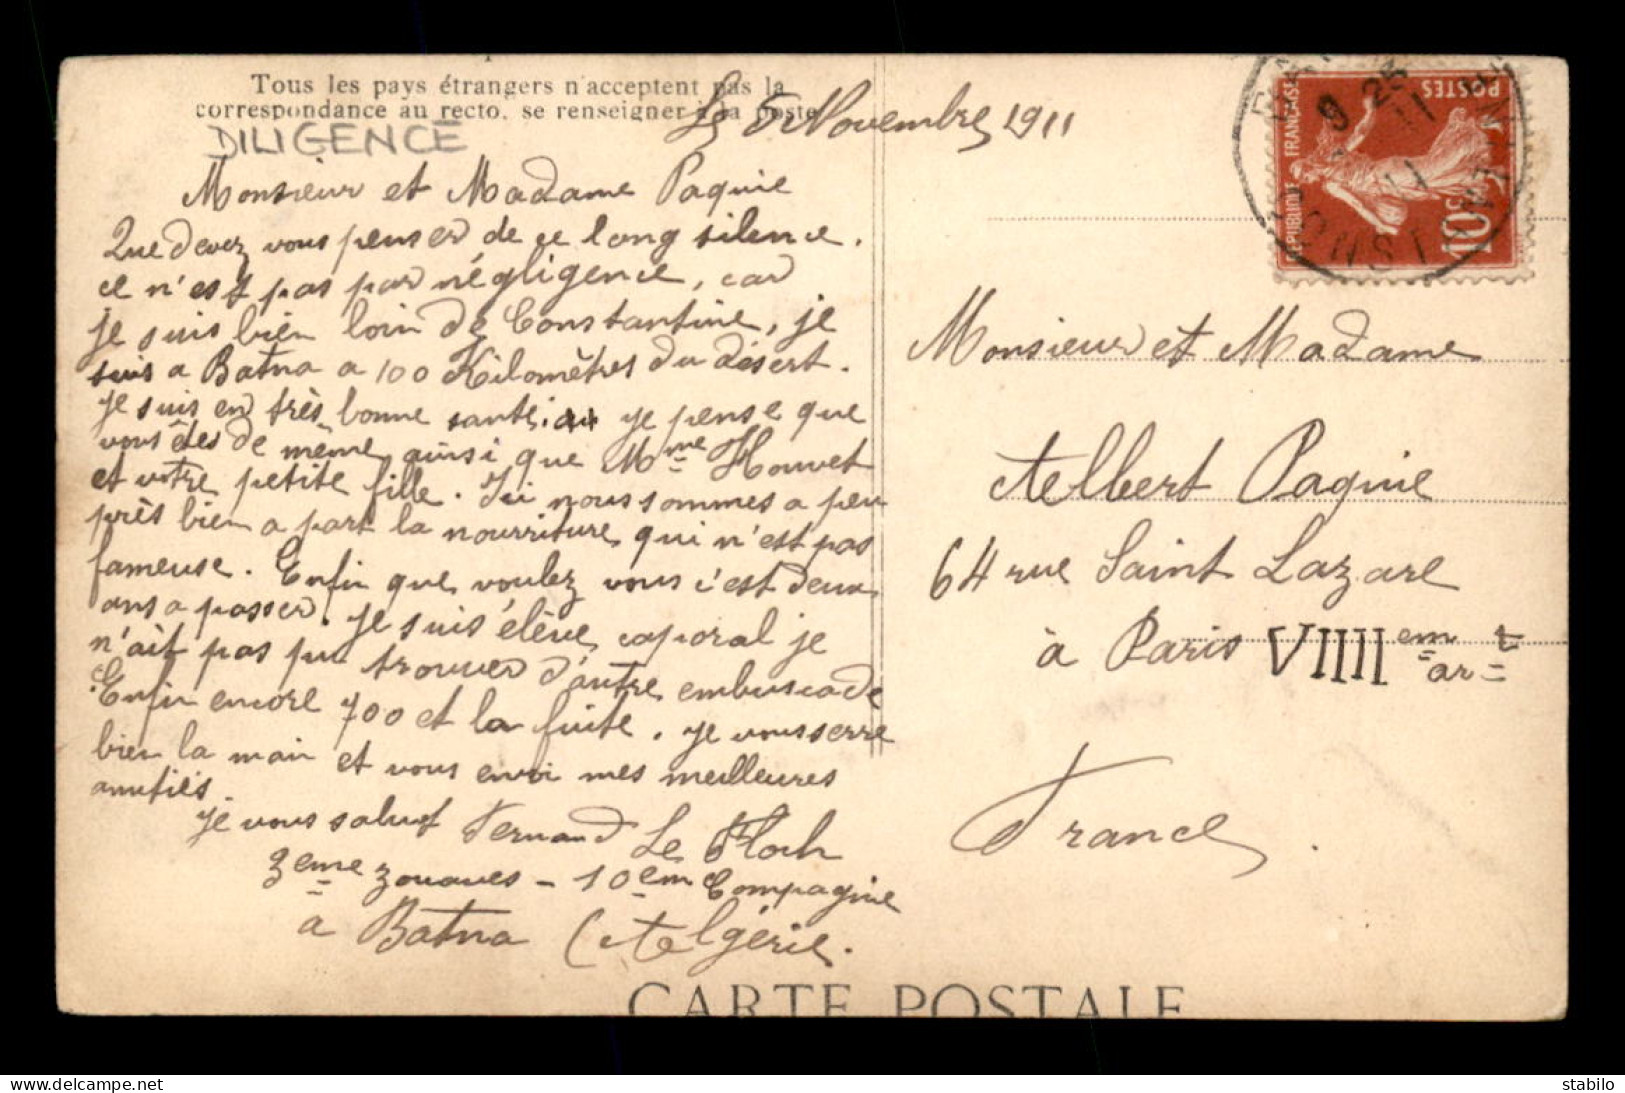 Tous les pays étrangers n'acceptent pas la
correspondance au recto, se renseigner à la poste
DILIGENCE
Le 5 Novembre 1911
Monsieur et Madame Paquie
Que devez vous penser de ce long silence.
ce n'est pas par négligence, car
je suis bien loin de Constantine, je
suis a Batna a 100 Kilomètres du désert.
je suis en très bonne santé. je pense que
vous êtes de même ainsi que Mme Houvet
et votre petite fille. Ici nous sommes a peu
près bien a part la nourriture qui n'est pas
fameuse. Enfin que voulez vous c'est deux
ans a passer. je suis élève caporal je
n'ait pas pu trouver d'autre embuscade
Enfin encore 700 et la fuite. je vous serre
bien la main et vous envoi mes meilleures
amitiés.
je vous salut Fernand Le Floch
3eme zouaves - 10em Compagnie
a Batna (Algérie.
CARTE POSTALE
RÉPUBLIQUE FRANÇAISE
POSTES
10c
CONSTANTINE
9 25
11
11
Monsieur et Madame
Albert Paquie
64 rue Saint Lazare
à Paris VIIII em ar t
France.
stabilo